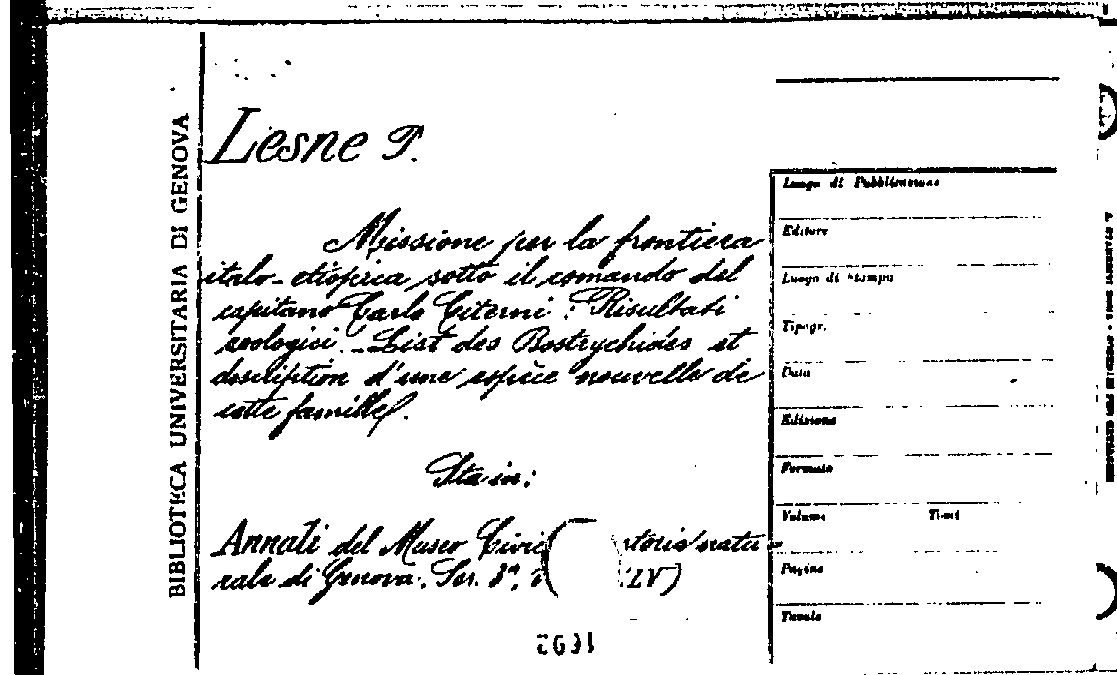 BIBLIOTECA UNIVERSITARIA DI GENOVA
Lesne P.
Missione per la frontiera
italo-etiopica sotto il comando del
capitano Carlo Citerni: Risultati
zoologici. - List des Bostrychides et
description d'une espèce nouvelle de
cette famille.
Sta in:
Annali del Museo Civic storia natu-
rale di Genova. Ser. 3ª, LV)
Luogo di Pubblicazione
Editore
Luogo di stampa
Tipogr.
Data
Edizione
Formato
Volume Tomi
Pagine
Tavole